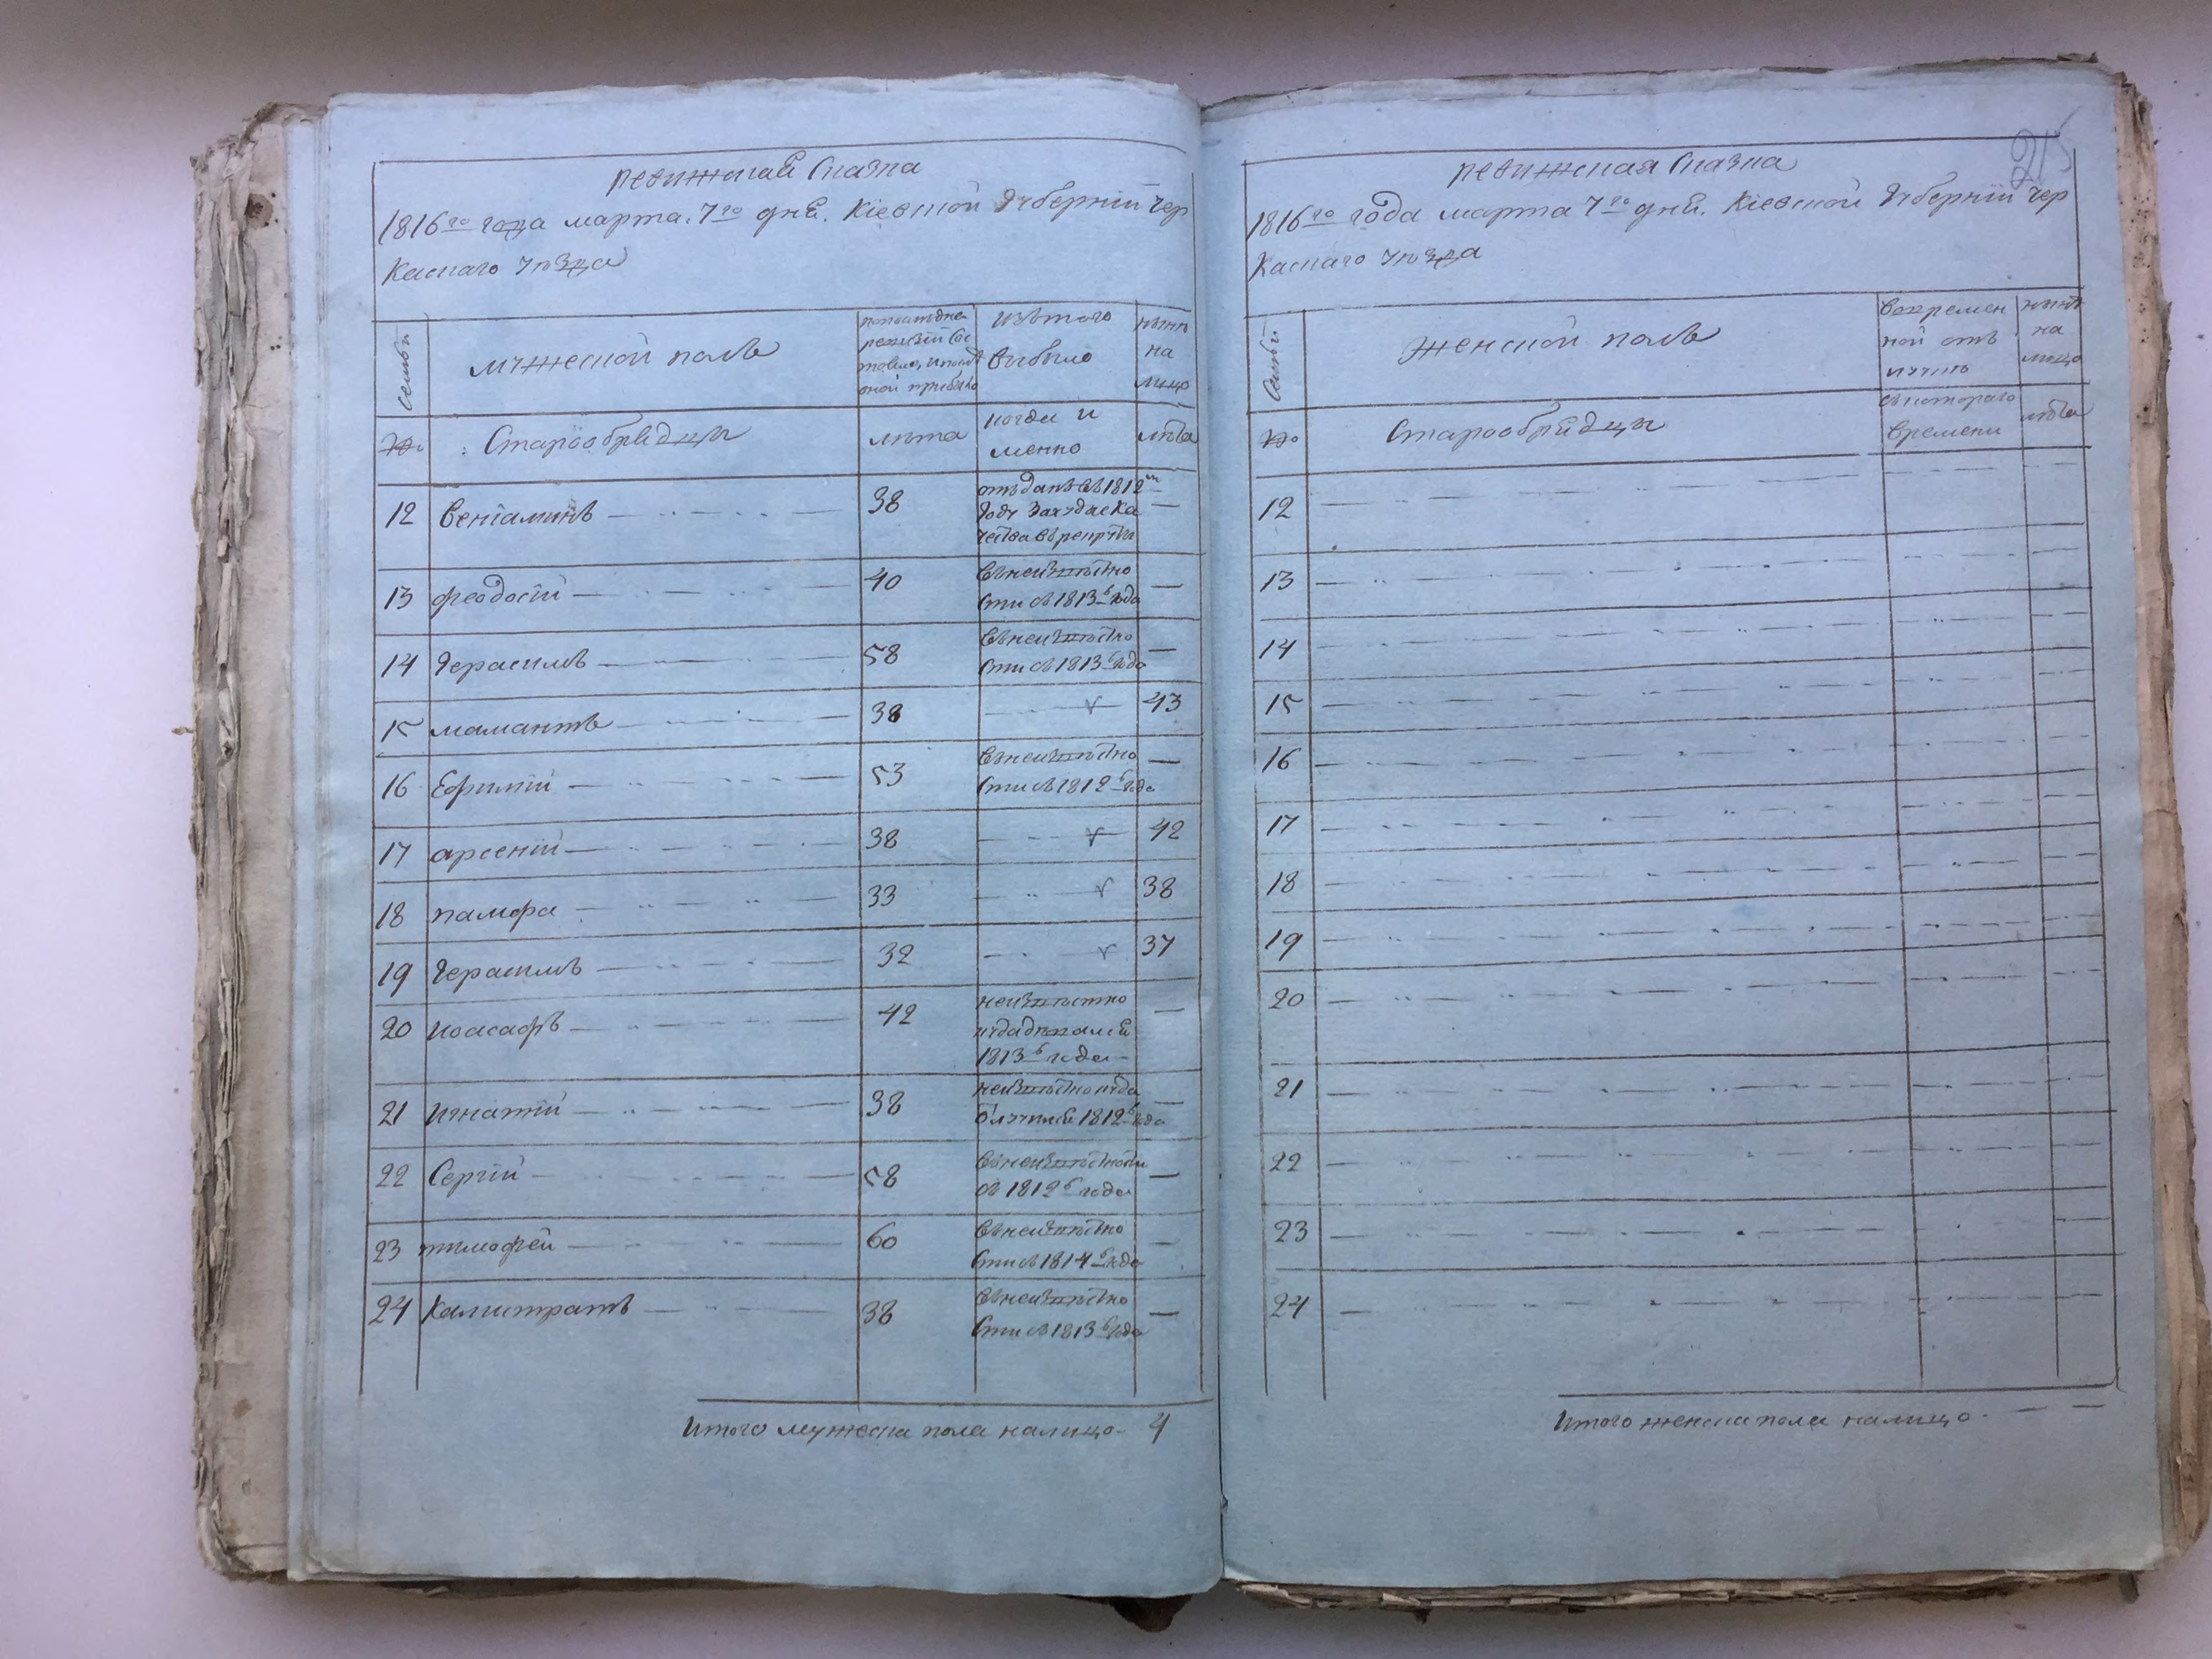 ревижская сказка
1816го года марта 7го дня. Кіевской Губерніи Чер
Каскаго уѣзда
Семьи
мужеской полъ
попоследне
ревизіи Со
стояло, и после
оной прибыло
изътого
выбыло
нынѣ
на
лицо
№
Старообрядцы
лѣта
когда и
менно
лѣта
12 Веніаминъ 38 отъданъ въ 1812м
Году Захудые Ка
чества въ рекруты
13 Феодосій 40 въ неизвѣстно
сти съ 1813г года
14 Герасимъ 58 въ неизвѣстно
сти съ 1813г года
15 мамантъ 38 43
16 Ефимій 53 въ неизвѣстно
сти съ 1812г года
17 арсеній 38 42
18 памфа 33 38
19 Герасимъ 32 37
20 иоасафъ 42 неизвѣстно
кудадевался
1813г года
21 игнатій 38 неизвѣстно куда
отлучился 1812г года
22 Сергій 58 въ неизвѣстности
съ 1812г года
23 тимофей 60 въ неизвѣстно
сти съ 1814г года
24 Калистратъ 38 въ неизвѣстно
сти съ 1813г года
Итого мужеска пола налицо 4
215
ревижская сказка
1816го года марта 7го дня. Кіевской Губерніи Чер
Каскаго уѣзда
Семьи
Женской полъ
вовремен
ной отъ
лучкѣ
нынѣ
на
лицо
№
Старообрядцы
съкотораго
времени
лѣта
12
13
14
15
16
17
18
19
20
21
22
23
24
Итого женска пола налицо